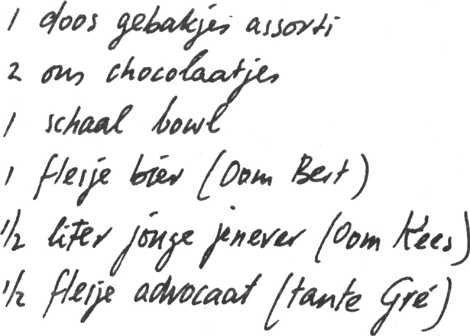 1 doos gebakjes assorti
2 ons chocolaatjes
1 schaal bowl
1 flesje bier (Oom Bert)
1/2 liter jonge jenever (Oom Kees)
1/2 flesje advocaat (tante Gré)